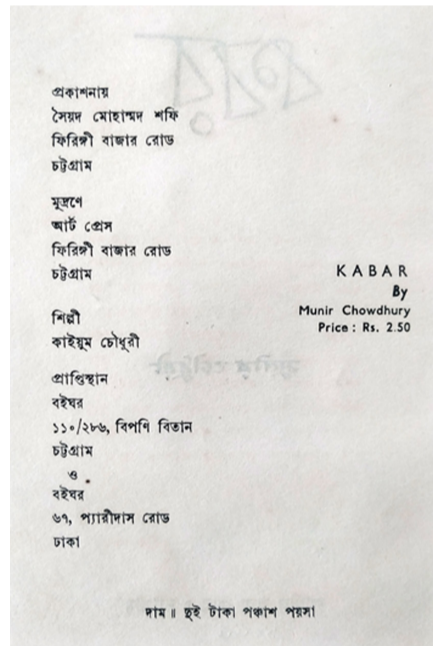 প্রকাশনায়
সৈয়দ মোহাম্মদ শফি
ফিরিঙ্গী বাজার রোড
চট্টগ্রাম
মুদ্রণে
আর্ট প্রেস
ফিরিঙ্গী বাজার রোড
চট্টগ্রাম
শিল্পী
কাইয়ুম চৌধুরী
প্রাপ্তিস্থান
বইঘর
১১০/২৮৬, বিপণি বিতান
চট্টগ্রাম
ও
বইঘর
৬৭, প্যারীদাস রোড
ঢাকা
KABAR
By
Munir Chowdhury
Price : Rs. 2.50
দাম ॥ দুই টাকা পঞ্চাশ পয়সা